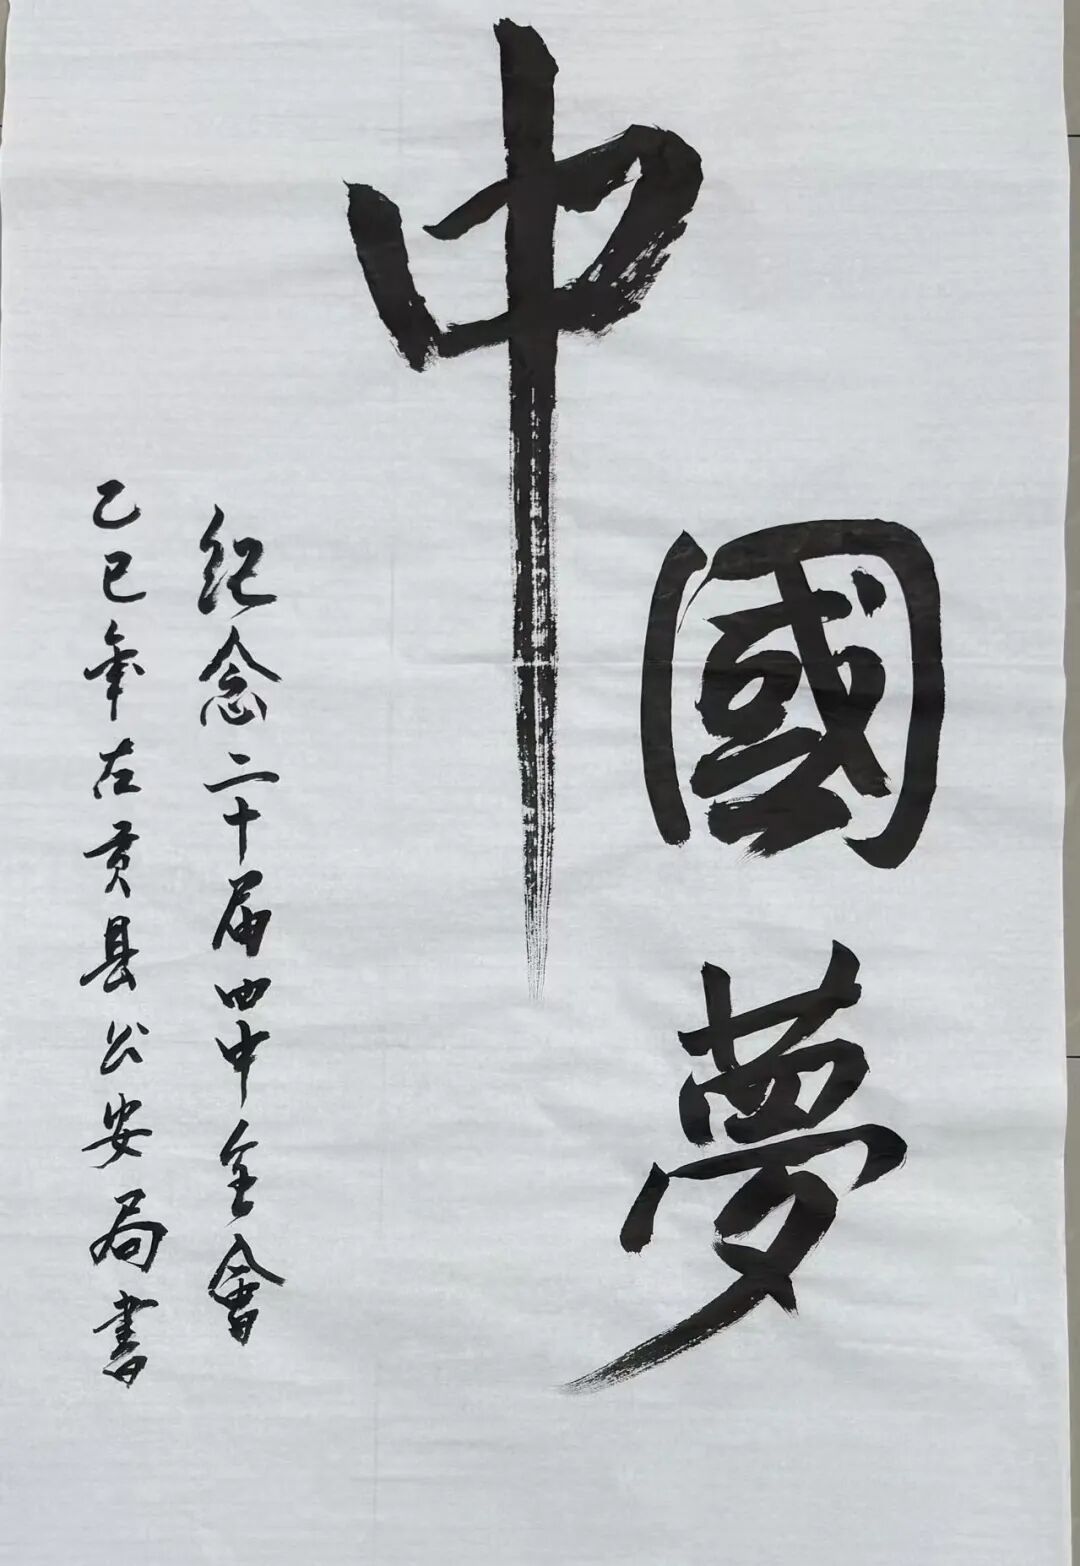 中國夢
纪念二十届四中全會
乙巳年左贡县公安局書